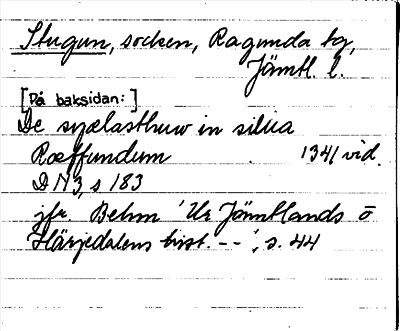 Stugun, socken, Ragunda tg,
Jämtl. l.
[På baksidan:]
De siælasthuw in silua
Ræffundum 1341 vid.
DN 3, s 183
jfr. Behm 'Ur Jämtlands o
Härjedalens hist. --', s. 44